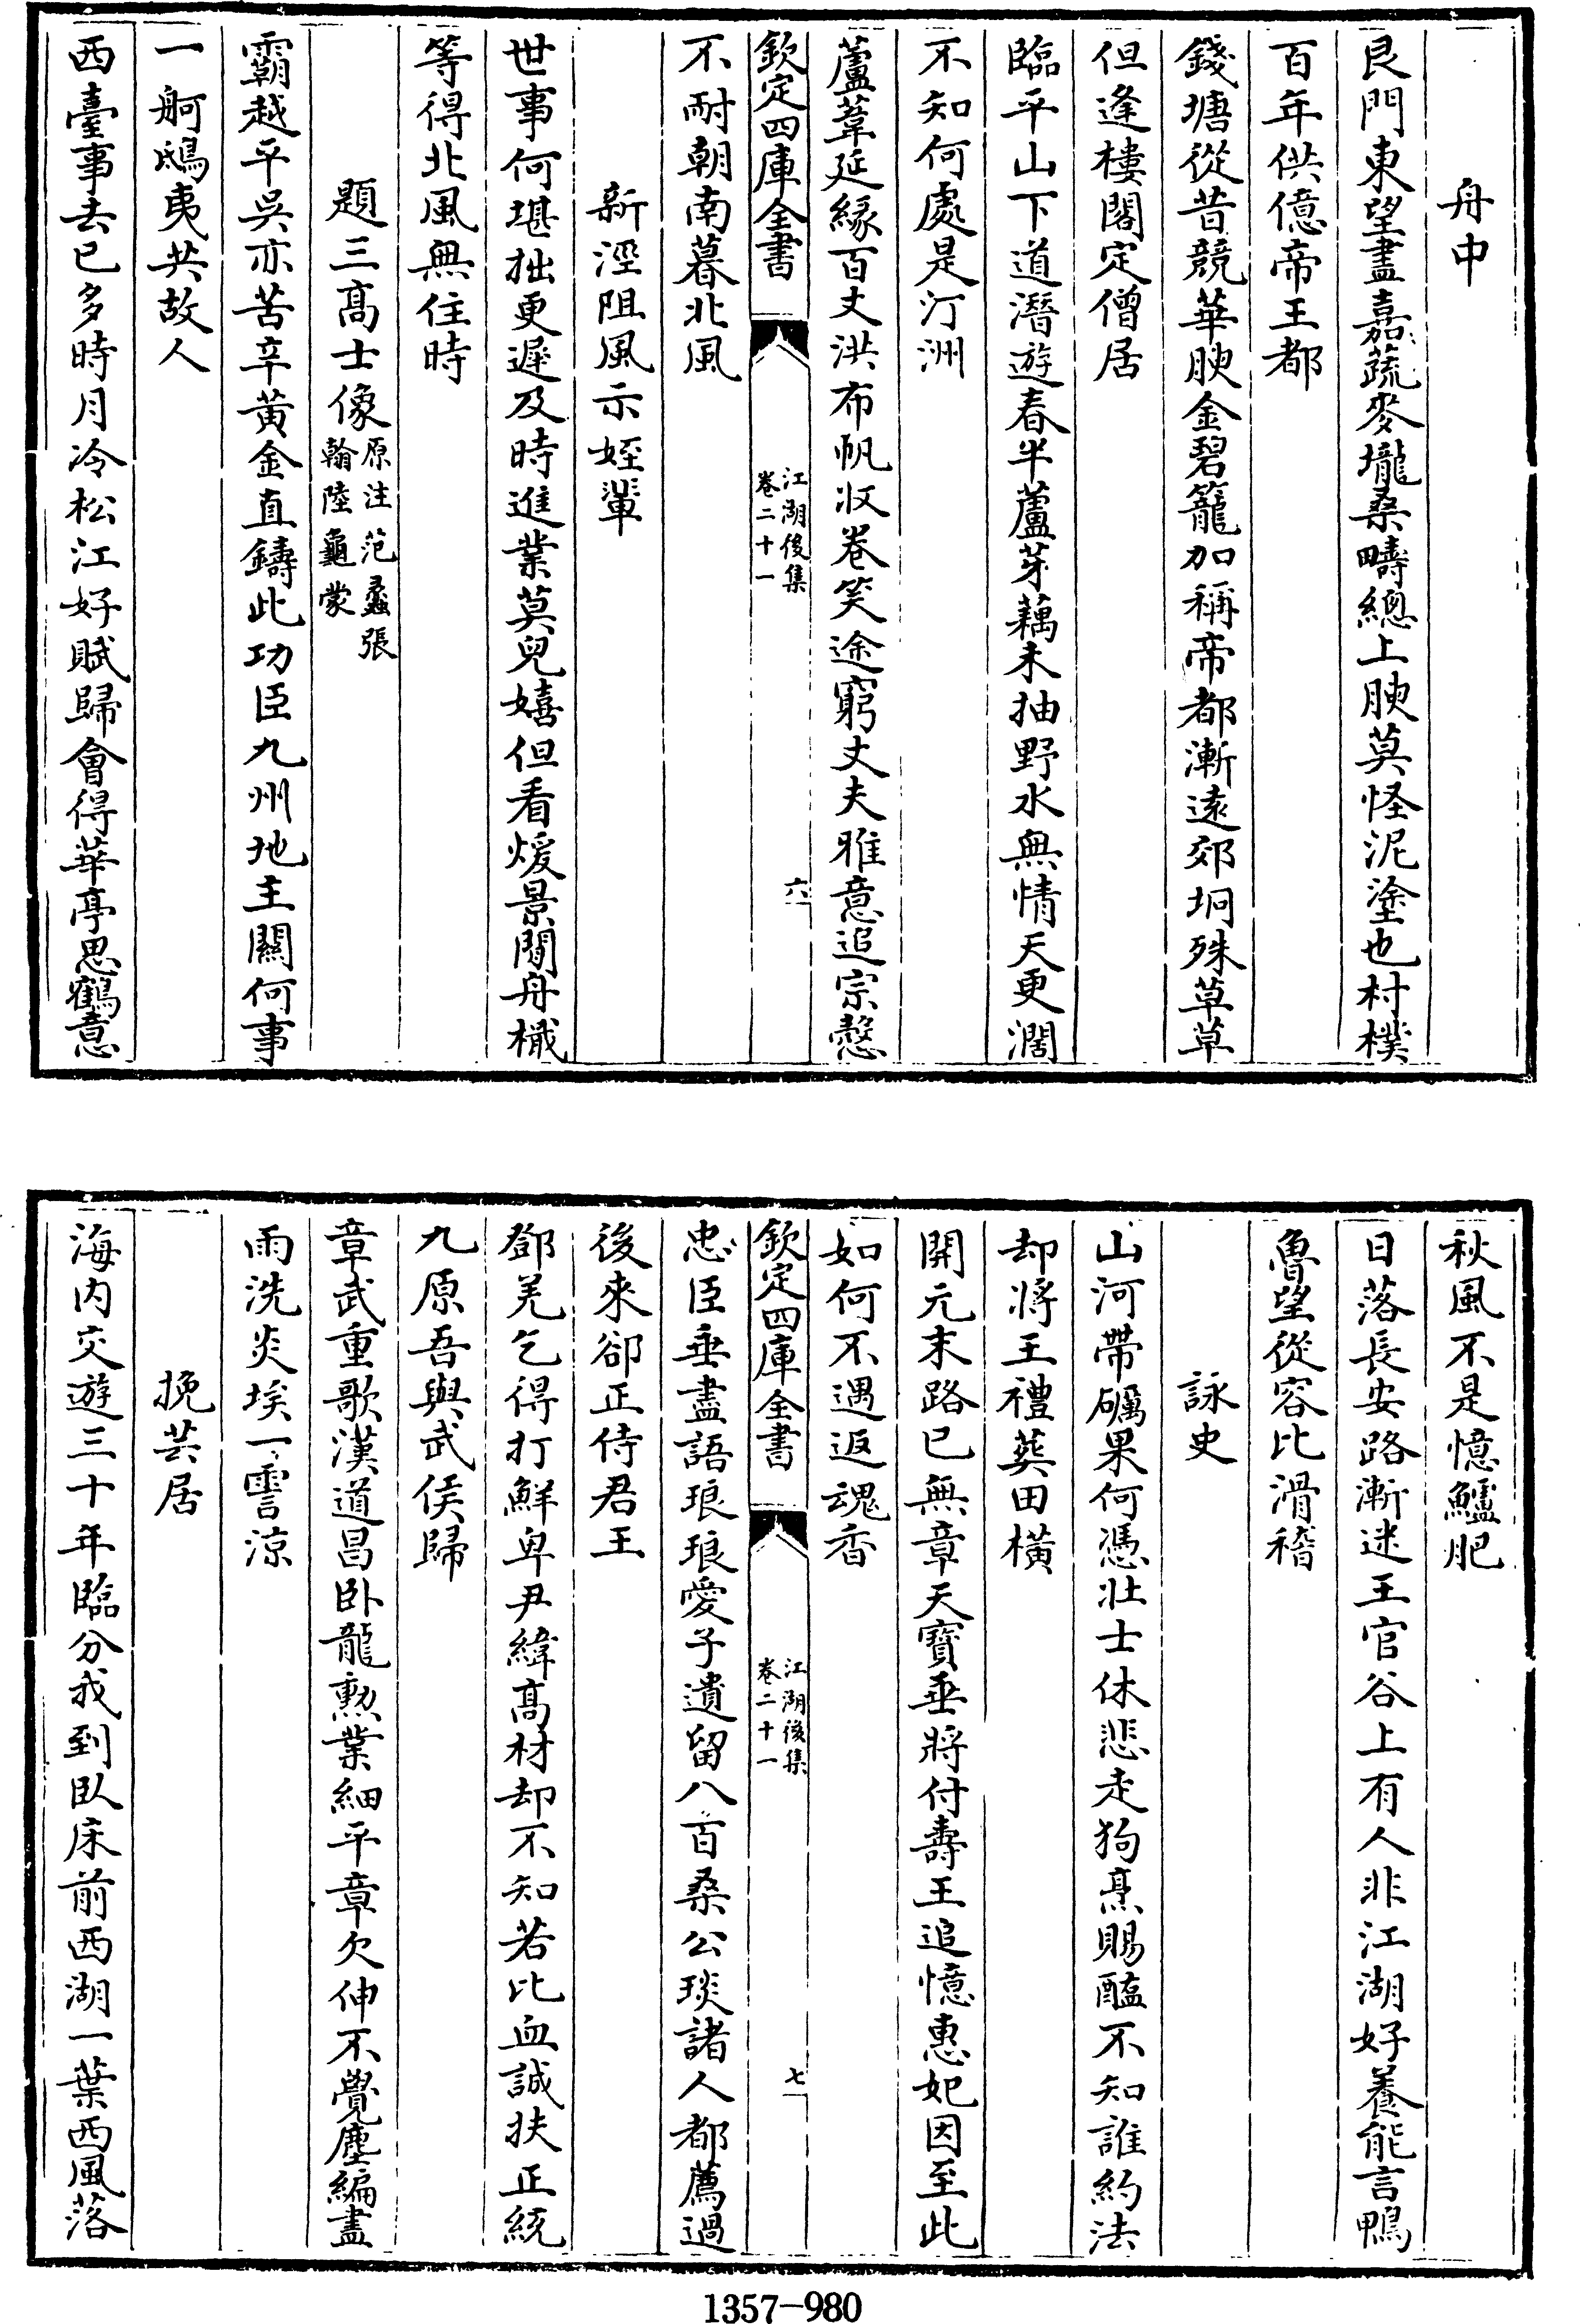 舟中
艮門東望盡嘉蔬麥壠桑疇總上腴莫怪泥塗也村樸
百年供億帝王都
錢塘從昔競華腴金碧籠加稱帝都漸遠郊坰殊草草
但逢樓閣定僧居
臨平山下道潛遊春半蘆芽藕未抽野水無情天更濶
不知何處是汀洲
蘆葦延緣百丈洪布帆収卷笑途窮丈夫雅意追宗慤
欽定四庫全書
江湖後集
卷二十一
六
不耐朝南暮北風
新涇阻風示姪輩
世事何堪拙更遲及時進業莫兒嬉但看煖景閒舟檝
等得北風無住時
題三高士像原注范蠡張
翰陸龜蒙
霸越平吳亦苦辛黃金直鑄此功臣九州地主關何事
一舸鴟夷共故人
西臺事去已多時月冷松江好賦歸會得華亭思鶴意
秋風不是憶鱸肥
日落長安路漸迷王官谷上有人非江湖好養能言鴨
魯望從容比滑稽
詠史
山河帶礪果何憑壯士休悲走狗烹賜醢不知誰約法
却將王禮葬田橫
開元末路已無章天寶垂將付壽王追憶惠妃因至此
如何不遇返魂香
欽定四庫全書
江湖後集
卷二十一
七
忠臣垂盡語琅琅愛子遺留八百桑公琰諸人都薦過
後來卻正侍君王
鄧羌乞得打鮮卑尹緯高材却不知若比血誠扶正統
九原吾與武侯歸
章武重歌漢道昌卧龍勲業細平章欠伸不覺塵編盡
雨洗炎埃一霅涼
挽芸居
海內交遊三十年臨分我到臥床前西湖一葉西風落
1357-980